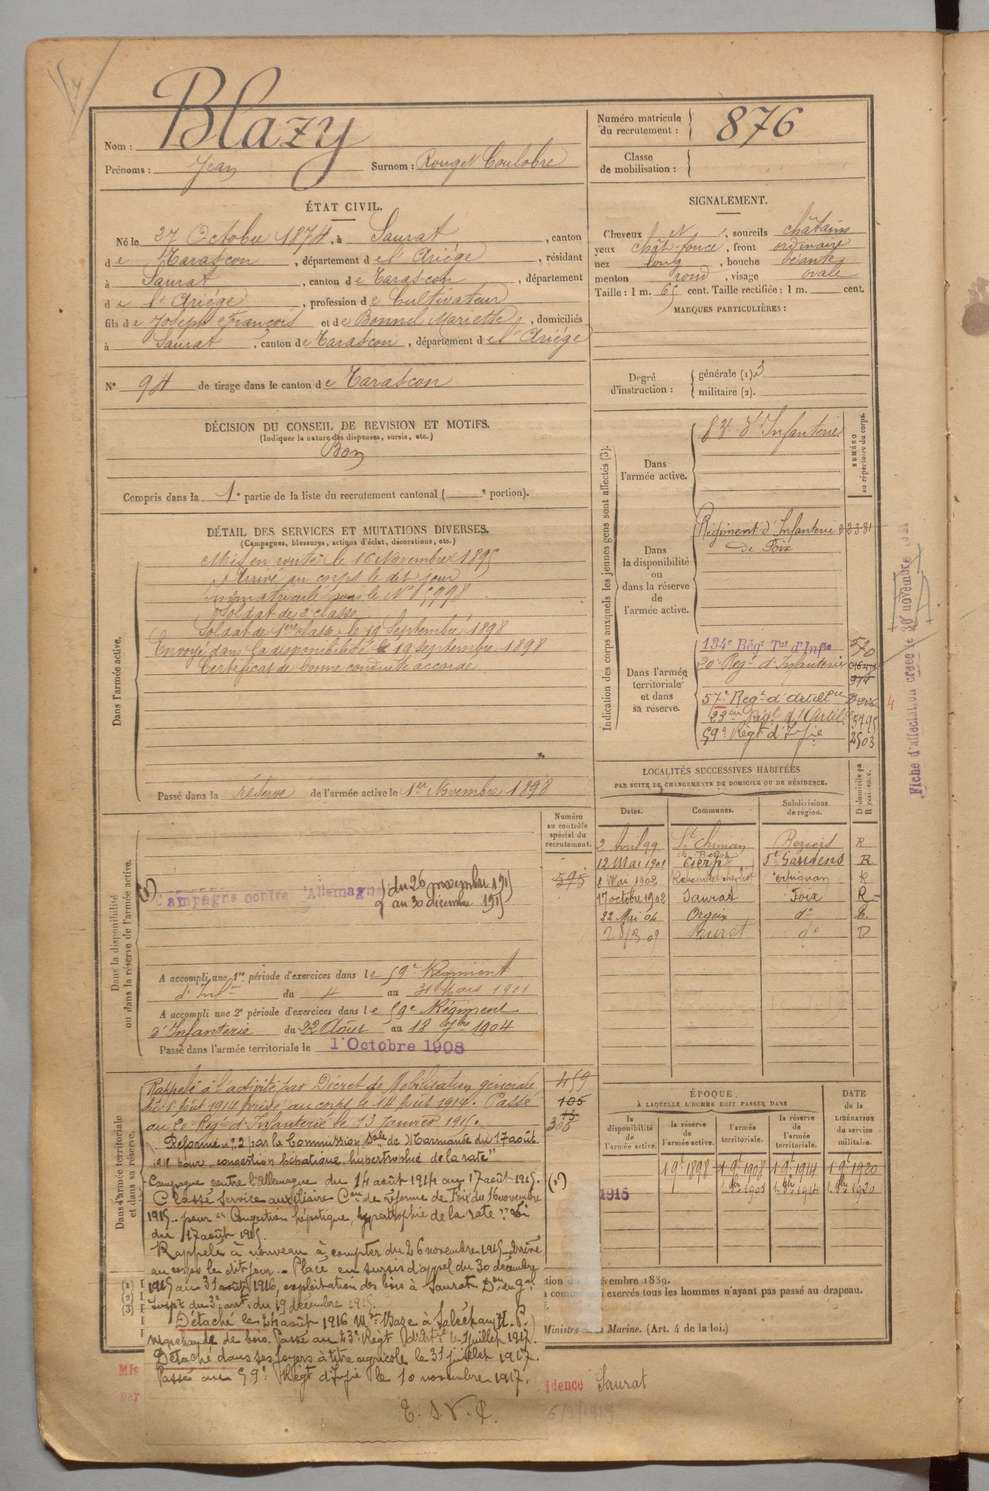 Nom : Blazy
Prénoms : Jean Surnom : Rouget Coulobre
ÉTAT CIVIL.
Né le 27 Octobre 1874, à Saurat, canton
de Tarascon, département de l'Ariège, résidant
à Saurat, canton de Tarascon, département
de l'Ariège, profession de Cultivateur
fils de Joseph François et de Bonnel Mariette, domiciliés
à Saurat, canton de Tarascon, département de l'Ariège
N° 94 de tirage dans le canton de Tarascon
DÉCISION DU CONSEIL DE REVISION ET MOTIFS.
(Indiquer la nature des dispenses, sursis, etc.)
Bon
Compris dans la 1e partie de la liste du recrutement cantonal ( e portion).
DÉTAIL DES SERVICES ET MUTATIONS DIVERSES.
(Campagnes, blessures, actions d'éclat, décorations, etc.)
Dans l'armée active.
Mis en route le 16 Novembre 1895
Arrivé au corps le dit jour
Immatriculé sous le N°
Soldat de 2e classe
Soldat de 1ère classe le 19 Septembre 1898
Envoyé dans la disponibilité le 19 septembre 1898
Certificat de bonne conduite accordé
Passé dans la réserve de l'armée active le 1er Novembre 1898
Dans la disponibilité
ou dans la réserve de l'armée active.
Numéro
au contrôle
spécial du
recrutement.
595
(1) Campagne contre l'Allemagne du 26 novembre 1915
au 30 décembre 1915
A accompli une 1re période d'exercices dans le 59e Régiment
d'Infie du 4 au 31 Mars 1901
A accompli une 2e période d'exercices dans le 59e Régiment
d'Infanterie du 22 Août au 18 7bre 1904
Passé dans l'armée territoriale le 1 Octobre 1908
Dans l'armée territoriale
et dans sa réserve.
Rappelé à l'activité par Décret de Mobilisation générale
du 1 août 1914 arrivé au corps le 14 août 1914. Passé
au 20e Régt d'Infanterie le 13 janvier 1915.
Réformé n° 2 par la Commission Sple de Marmande du 17 août
1915 pour "congestion hépatique, hypertrophie de la rate"
Campagne contre l'Allemagne du 14 août 1914 au 17 août 1915.
Classé service auxiliaire Con de réforme de Foix du 16 novembre
1915. pour "Congestion hépatique, hypertrophie de la rate"
du 17 août 1915.
Rappelé à nouveau à compter du 26 novembre 1915. Arrivé
au corps le dit jour. Placé en sursis d'appel du 30 décembre
1915 au 31 août 1916, exploitation des bois à Saurat
du 19 décembre 1915.
Détaché le 24 août 1916 Mon Baze à Saléchan (H. P.)
marchande de bois. Passé au 23e Régt d'Artie le 1 juillet 1917.
Détaché dans ses foyers à titre agricole le 31 juillet 1917.
Passé au 59e Régt d'Infie le 10 novembre 1917.
T. S. V. P.
Mis
par
459
105
Numéro matricule
du recrutement : 876
Classe
de mobilisation :
SIGNALEMENT.
Cheveux N, sourcils châtains
yeux chât. foncé, front ordinaire
nez long, bouche béante
menton rond, visage ovale
Taille : 1 m. 65 cent. Taille rectifiée : 1 m. cent.
MARQUES PARTICULIÈRES :
Degré
d'instruction :
générale (1) 3
militaire (2).
Indication des corps auxquels les jeunes gens sont affectés (3).
NUMÉRO
au répertoire du corps.
Dans
l'armée active.
83e d'Infanterie
Dans
la disponibilité
ou
dans la réserve
de
l'armée active.
Régiment d'Infanterie
de Foix
2381
Dans l'armée
territoriale
et dans
sa réserve.
134e Régt Tal d'Infie
20e Regt d'Infanterie
57e Regt d'Artillerie
23e Regt d'Artillie
59e Regt d'Infie
2503
4
Fiche d'affectation créée le 20 novembre
LOCALITÉS SUCCESSIVES HABITÉES
PAR SUITE DE CHANGEMENTS DE DOMICILE OU DE RÉSIDENCE.
Dates. Communes. Subdivisions de région. D domicile ou R résidence.
2 Avril 99 St Chinian Beziers R
12 Mai 1901 Cierp St Gaudens R
8 Mai 1902 Perpignan R
17 octobre 1902 Saurat Foix R
22 Mai 04 Orgeix do R
28/3 09 Saurat do D
ÉPOQUE
À LAQUELLE L'HOMME DOIT PASSER DANS
DATE
de la
LIBÉRATION
du service
militaire.
la
disponibilité
de l'armée
active.
la réserve
de
l'armée active.
l'armée
territoriale.
la réserve
de
l'armée
territoriale.
1 9e 1898 1 9e 1908 1 9e 1914 1 9e 1920
1915
(1)
décembre 1889.
exercés tous les hommes n'ayant pas passé au drapeau.
Ministre Marine. (Art. 4 de la loi.)
idence Saurat